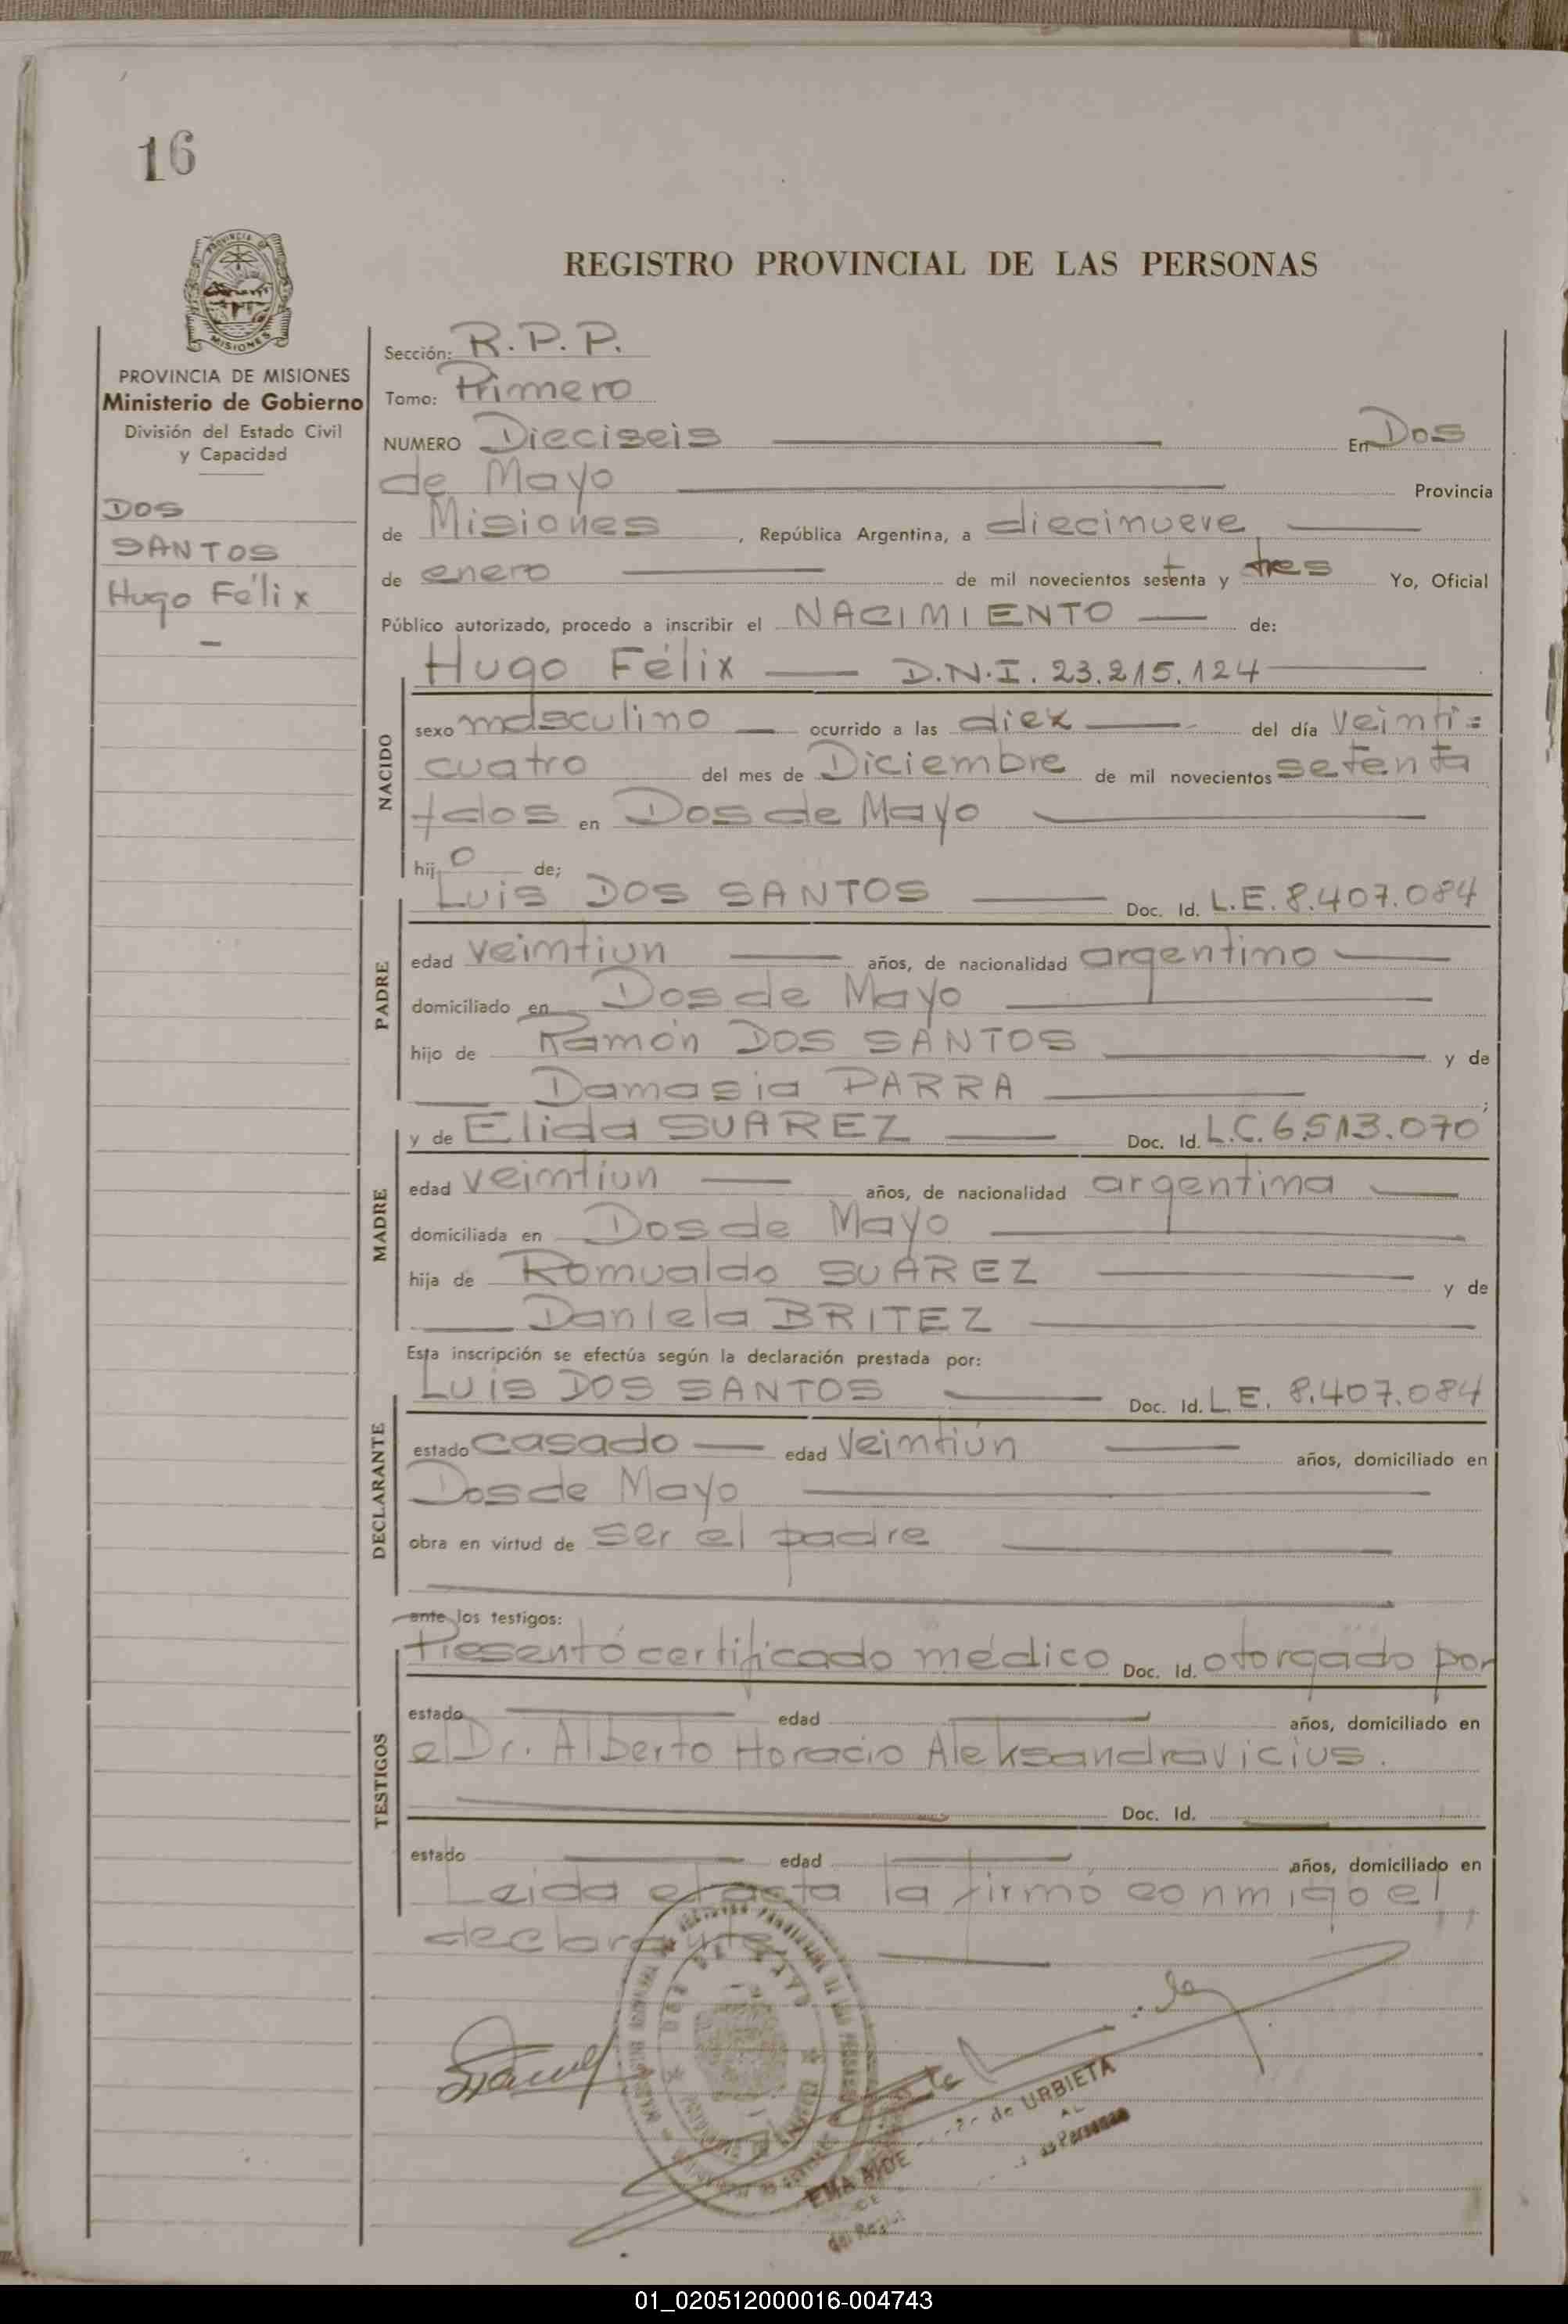 16
PROVINCIA DE
MISIONES
REGISTRO PROVINCIAL DE LAS PERSONAS
PROVINCIA DE MISIONES
Ministerio de Gobierno
División del Estado Civil
y Capacidad
DOS
SANTOS
Hugo Félix
Sección: R.P.P.
Tomo: Primero
NUMERO Dieciseis En Dos
de Mayo Provincia
de Misiones, República Argentina, a diecinueve
de enero de mil novecientos sesenta y tres Yo, Oficial
Público autorizado, procedo a inscribir el NACIMIENTO de:
Hugo Félix D.N.I. 23.215.124
NACIDO
sexo masculino ocurrido a las diez del día veinti=
cuatro del mes de Diciembre de mil novecientos setenta
y dos en Dos de Mayo
hijo de;
Luis DOS SANTOS Doc. Id. L.E. 8.407.084
PADRE
edad veintiun años, de nacionalidad argentino
domiciliado en Dos de Mayo
hijo de Ramón DOS SANTOS y de
Damasia PARRA ;
y de Elida SUAREZ Doc. Id. L.C. 6.513.070
MADRE
edad veintiun años, de nacionalidad argentina
domiciliada en Dos de Mayo
hija de Romualdo SUAREZ y de
Daniela BRITEZ
Esta inscripción se efectúa según la declaración prestada por:
Luis DOS SANTOS Doc. Id. L.E. 8.407.084
DECLARANTE
estado casado edad veintiún años, domiciliado en
Dos de Mayo
obra en virtud de ser el padre
ante los testigos:
Presentó certificado médico Doc. Id. otorgado por
TESTIGOS
estado edad años, domiciliado en
el Dr. Alberto Horacio Aleksandravicius.
Doc. Id.
estado edad años, domiciliado en
Leida el acta la firmó conmigo el
declarante
DOS DE MAYO
EMA AIDE de URBIETA
01_020512000016-004743